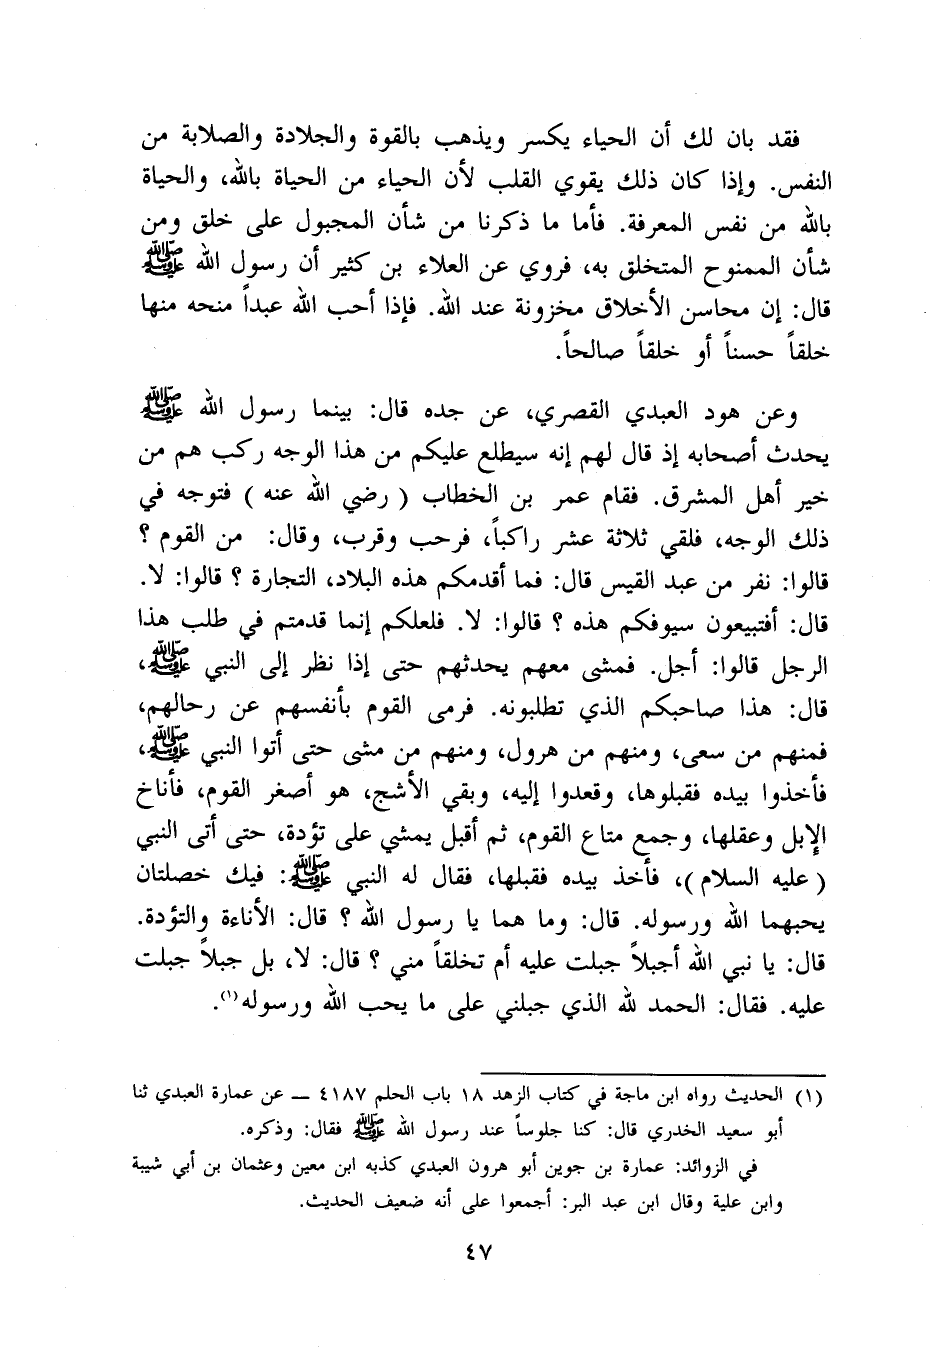 فقد بان لك أن الحياء يكسر ويذهب بالقوة والجلادة والصلابة من
النفس. وإذا كان ذلك يقوي القلب لأن الحياء من الحياة بالله، والحياة
بالله من نفس المعرفة. فأما ما ذكرنا من شأن المجبول على خلق ومن
شأن الممنوح المتخلق به، فروي عن العلاء بن كثير أن رسول الله ﷺ
قال: إن محاسن الأخلاق مخزونة عند الله. فإذا أحب الله عبداً منحه منها
خلقاً حسناً أو خلقاً صالحاً.
وعن هود العبدي القصري، عن جده قال: بينما رسول الله ﷺ
يحدث أصحابه إذ قال لهم إنه سيطلع عليكم من هذا الوجه ركب هم من
خير أهل المشرق. فقام عمر بن الخطاب ( رضي الله عنه ) فتوجه في
ذلك الوجه، فلقي ثلاثة عشر راكباً، فرحب وقرب، وقال: من القوم ؟
قالوا: نفر من عبد القيس قال: فما أقدمكم هذه البلاد، التجارة ؟ قالوا: لا.
قال: أفتبيعون سيوفكم هذه ؟ قالوا: لا. فلعلكم إنما قدمتم في طلب هذا
الرجل قالوا: أجل. فمشى معهم يحدثهم حتى إذا نظر إلى النبي ﷺ،
قال: هذا صاحبكم الذي تطلبونه. فرمى القوم بأنفسهم عن رحالهم،
فمنهم من سعى، ومنهم من هرول، ومنهم من مشى حتى أتوا النبي ﷺ،
فأخذوا بيده فقبلوها، وقعدوا إليه، وبقي الأشج، هو أصغر القوم، فأناخ
الإبل وعقلها، وجمع متاع القوم، ثم أقبل يمشي على تؤدة، حتى أتى النبي
( عليه السلام )، فأخذ بيده فقبلها، فقال له النبي ﷺ: فيك خصلتان
يحبهما الله ورسوله. قال: وما هما يا رسول الله ؟ قال: الأناءة والتؤدة.
قال: يا نبي الله أجبلاً جبلت عليه أم تخلقاً مني ؟ قال: لا، بل جبلاً جبلت
عليه. فقال: الحمد لله الذي جبلني على ما يحب الله ورسوله(١).
(١) الحديث رواه ابن ماجة في كتاب الزهد ١٨ باب الحلم ٤١٨٧ ــ عن عمارة العبدي ثنا
أبو سعيد الخدري قال: كنا جلوساً عند رسول الله ﷺ فقال: وذكره.
في الزوائد: عمارة بن جوين أبو هرون العبدي كذبه ابن معين وعثمان بن أبي شيبة
وابن علية وقال ابن عبد البر: أجمعوا على أنه ضعيف الحديث.
٤٧